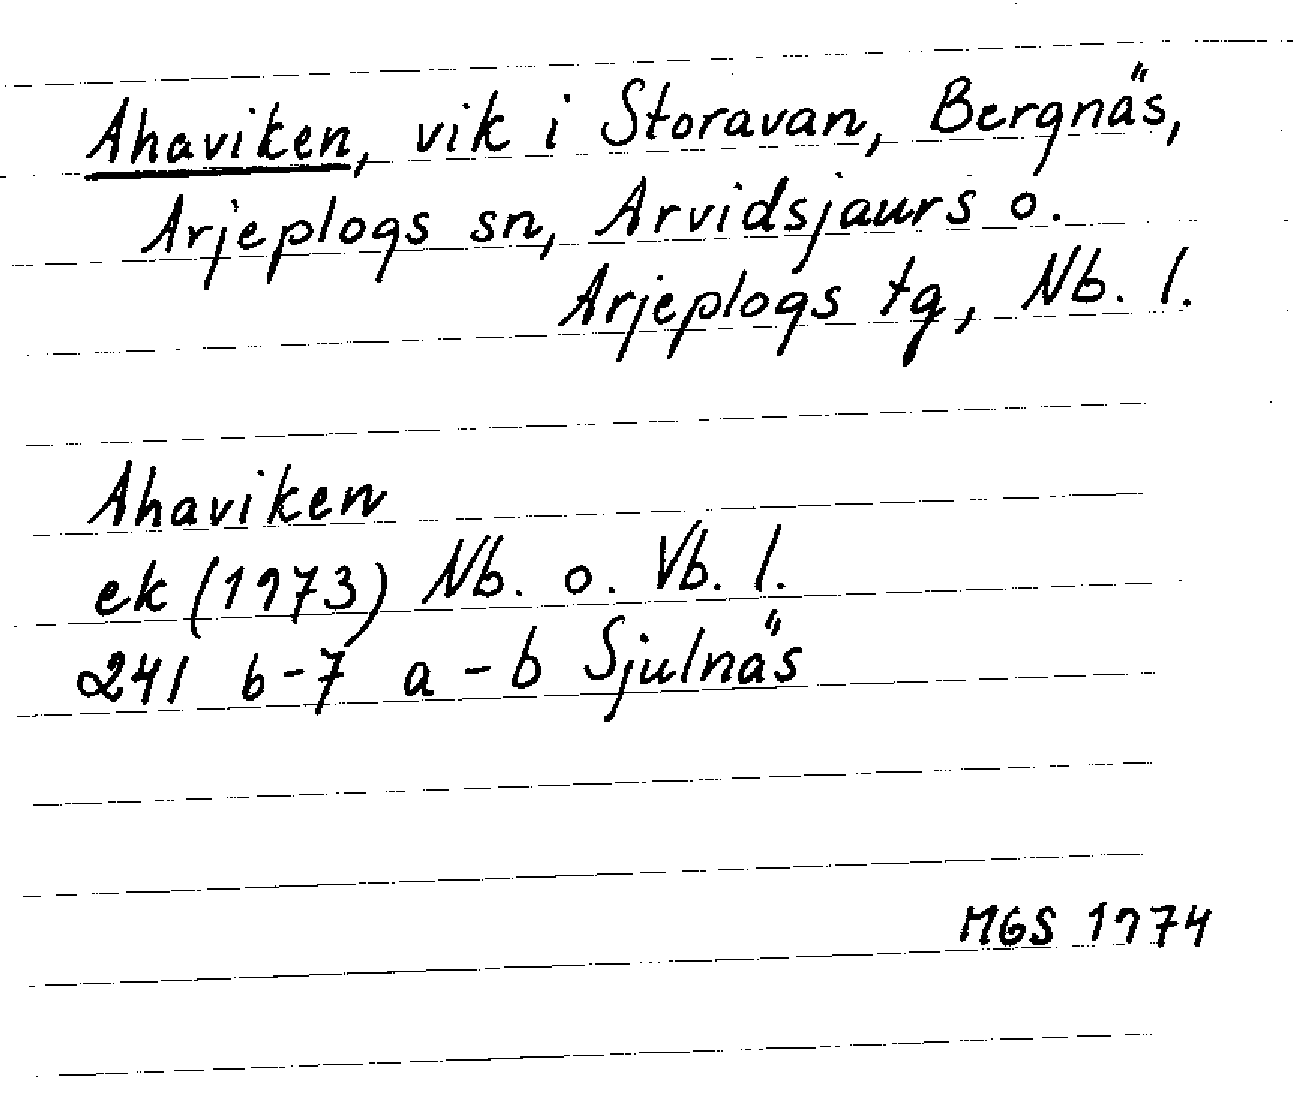 Ahaviken, vik i Storavan, Bergnäs,
Arjeplogs sn, Arvidsjaurs o.
Arjeplogs tg, Nb. l.
Ahaviken
ek (1973) Nb. o. Vb. l.
241 6-7 a-b Sjulnäs
MGS 1974